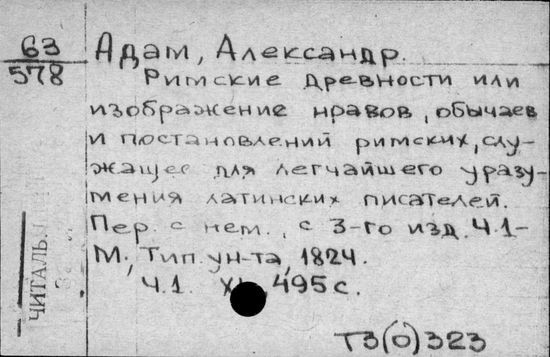 63
578
Адам, Александр.
Римские древности или
изображение нравов, обычаев
и постановлений римских, слу-
жащее для легчайшего уразу-
мения латинских писателей.
Пер. с нем., с 3-го изд. Ч.1-
М., Тип. ун-та, 1824.
Ч.1. 495 с.
Т3(0)323